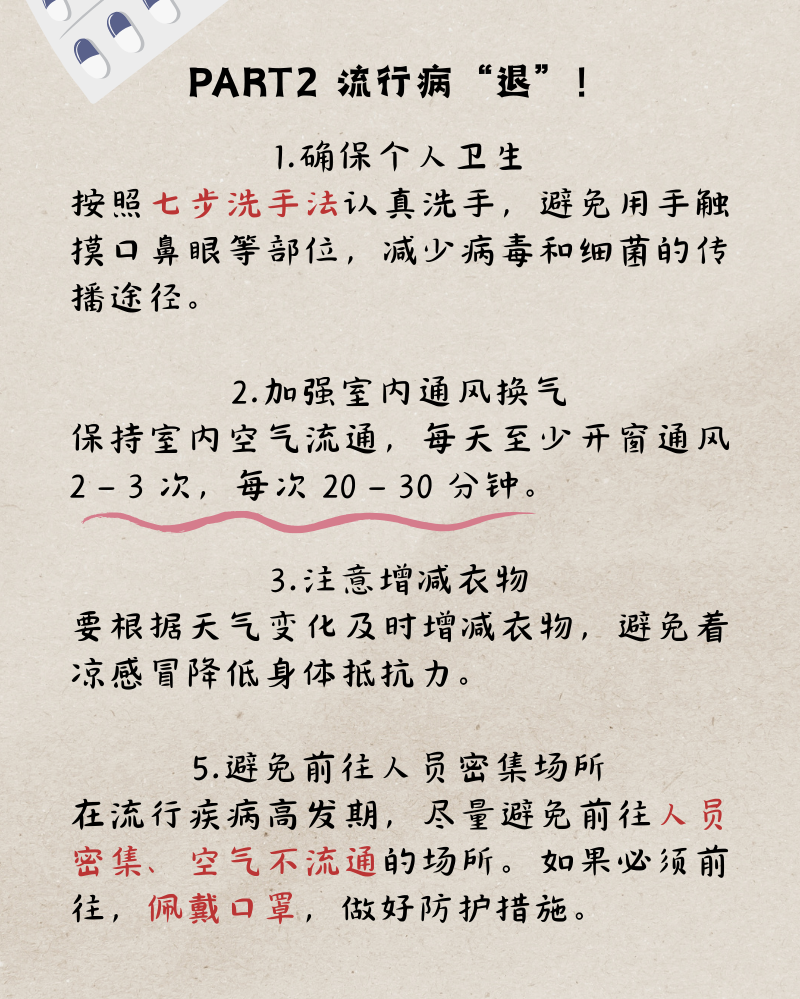 PART2 流行病“退”！
1.确保个人卫生
按照七步洗手法认真洗手，避免用手触
摸口鼻眼等部位，减少病毒和细菌的传
播途径。
2.加强室内通风换气
保持室内空气流通，每天至少开窗通风
2 – 3 次，每次 20 – 30 分钟。
3.注意增减衣物
要根据天气变化及时增减衣物，避免着
凉感冒降低身体抵抗力。
5.避免前往人员密集场所
在流行疾病高发期，尽量避免前往人员
密集、空气不流通的场所。如果必须前
往，佩戴口罩，做好防护措施。